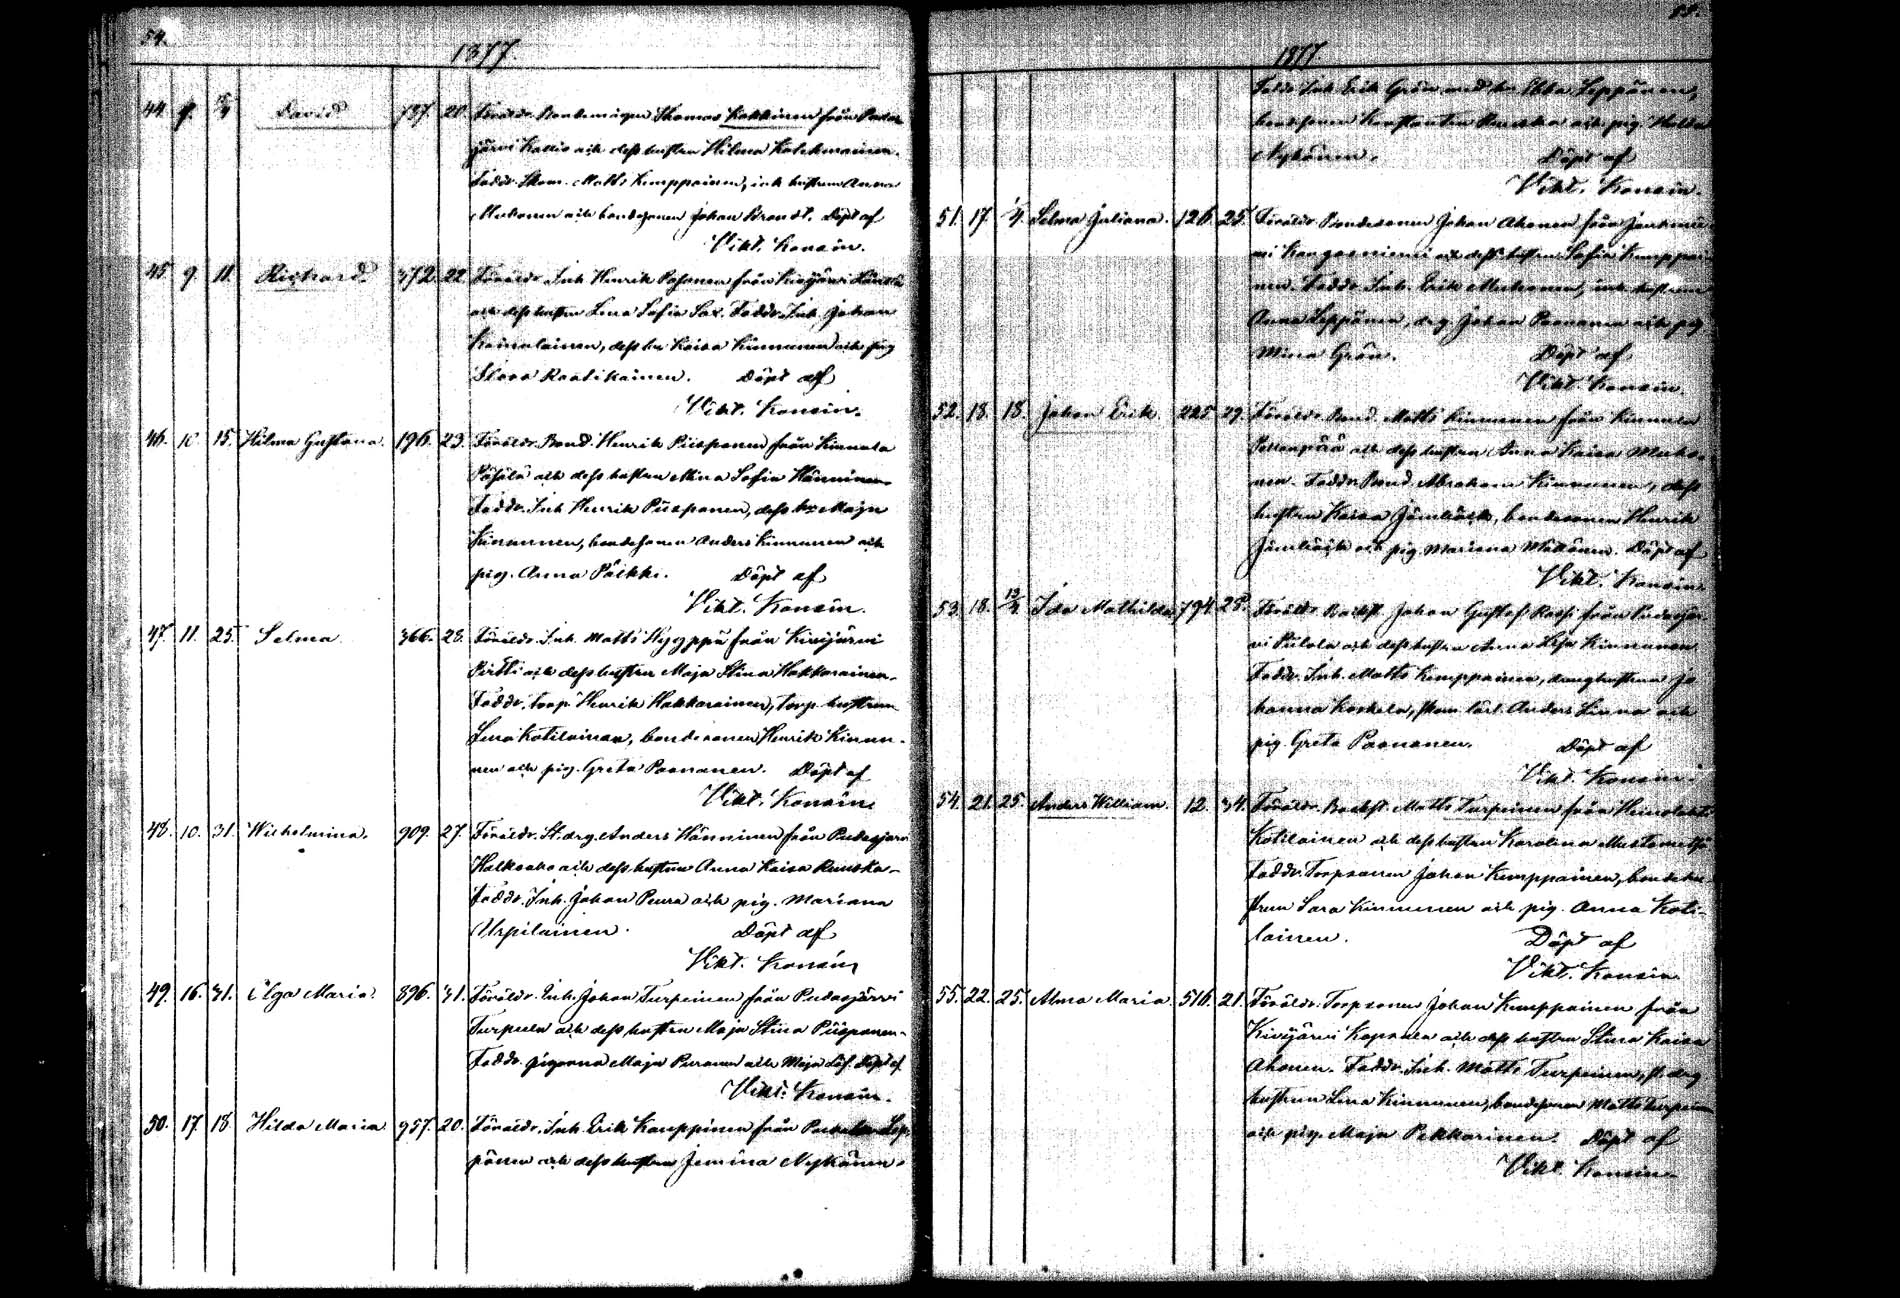 54.
1877.
44. 9. David 737. 20. Föräldr. Thomas Kokkinen från
och dess hustru Hilma
Faddr. Matts Kemppainen, inh. hustrun Anna
Muhonen och bondesonen Johan Brandt. Döpt af
Vikt. Konsin.
45. 9. 11. Richard 372. 22. Föräldr. Inh. Henrik från Kivijärvi
och dess hustru Lena Sofia Sax. Faddr. Inh. Johan
Kainulainen, dess hu Kaisa Kinnunen och pig
Raatikainen. Döpt af
Vikt. Konsin.
46. 10. 15. Hilma Gustava. 196. 23. Föräldr. Bond. Henrik Piispanen från Kinnula
och dess hustru Mina Sofia Hänninen
Faddr. Inh. Henrik Piispanen, dess hu Maja
Kinnunen, bondesonen Anders Kinnunen och
pig. Anna Döpt af
Vikt. Konsin.
47. 11. 25. Selma. 366. 28. Föräldr. Inh. Matts Hyyppä från Kivijärvi
och dess hustru Maja Stina Hakkarainen.
Faddr. torp. Henrik Hakkarainen, torp. hustrun
Lena Kotilainen, bondesonen Henrik Kinnu-
nen och pig. Greta Paananen. Döpt af
Vikt. Konsin
48. 10. 31. Wilhelmina. 909. 27. Föräldr. St. drg. Anders Hänninen från Pudasjärvi
och dess hustru Anna Kaisa Ruuska.
Faddr. Inh. Johan Peura och pig. Mariana
Urpilainen. Döpt af
Vikt. Konsin
49. 16. 31. Olga Maria. 896. 31. Föräldr. Inh. Johan Turpeinen från Pudasjärvi
Turpeila och dess hustru Maja Stina Piispanen.
Faddr. pigorna Maja Puranen och Maja Löf. Döpt af
Vikt. Konsin.
50. 17. 18. Hilda Maria. 957. 20. Föräldr. Inh. Erik Kauppinen från Lep-
pänen och dess hustru Jemina Nykänen.
1877.
Faddr. Inh. Erik Grön med hu Ebba Leppänen,
bondesonen Konstantin Ruuska och pig. Hulda
Nykänen. Döpt af
Vikt. Konsin.
51. 17. 1/4. Selma Juliana. 126. 25. Föräldr. Bondesonen Johan Ahonen från
Kangasniemi och dess hustru Sofia Kemppai
nen. Faddr. Inh. Erik Muhonen, inh. hustrun
Anna Leppänen, drg. Johan Paananen och pig
Mina Grön. Döpt af
Vikt. Konsin.
52. 18. 18. Johan Erik. 225. 29. Föräldr. Bond. Matts Kinnunen från Kinnula
och dess hustru Anna Kaisa Muho-
nen. Faddr. Bond. Abraham Kinnunen, dess
hustru Kaisa Jämbäck, bondesonen Henrik
Jämbäck och pig. Mariana Mäkönen. Döpt af
Vikt. Konsin.
53. 18. 13/4 Ida Mathilda 794. 25. Föräldr. Backst. Johan Gustaf Rossi från Pudasjär-
vi Piilola och dess hustru Anna Lisa Kinnunen
Faddr. Inh. Matts Kemppainen, hustrun Jo
hanna Koskela, Anders Linna och
pig. Greta Paananen. Döpt af
Vikt. Konsin.
54. 21. 25. Anders William. 12. 34. Föräldr. Backst. Matts Turpeinen från
Kotilainen och dess hustru Karolina
Faddr. Torpsonen Johan Kemppainen, bondehu
strun Sara Kinnunen och pig. Anna Koti-
lainen. Döpt af
Vikt. Konsin.
55. 22. 25. Alma Maria. 516. 21. Föräldr. Torpsonen Johan Kemppainen från
Kivijärvi och dess hustru Stina Kaisa
Ahonen. Faddr. Inh. Matts Turpeinen, st. drg
hustrun Lena Kinnunen, bondesonen Matts Turpeinen
och pig. Maja Pekkarinen. Döpt af
Vikt. Konsin.